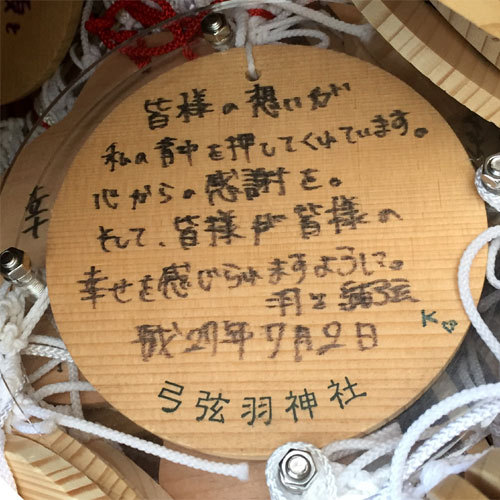 皆様の想いが
私の背中を押してくれています。
心からの感謝を。
そして、皆様が皆様の
幸せを感じられますように。
羽生結弦
平成27年7月2日
弓弦羽神社